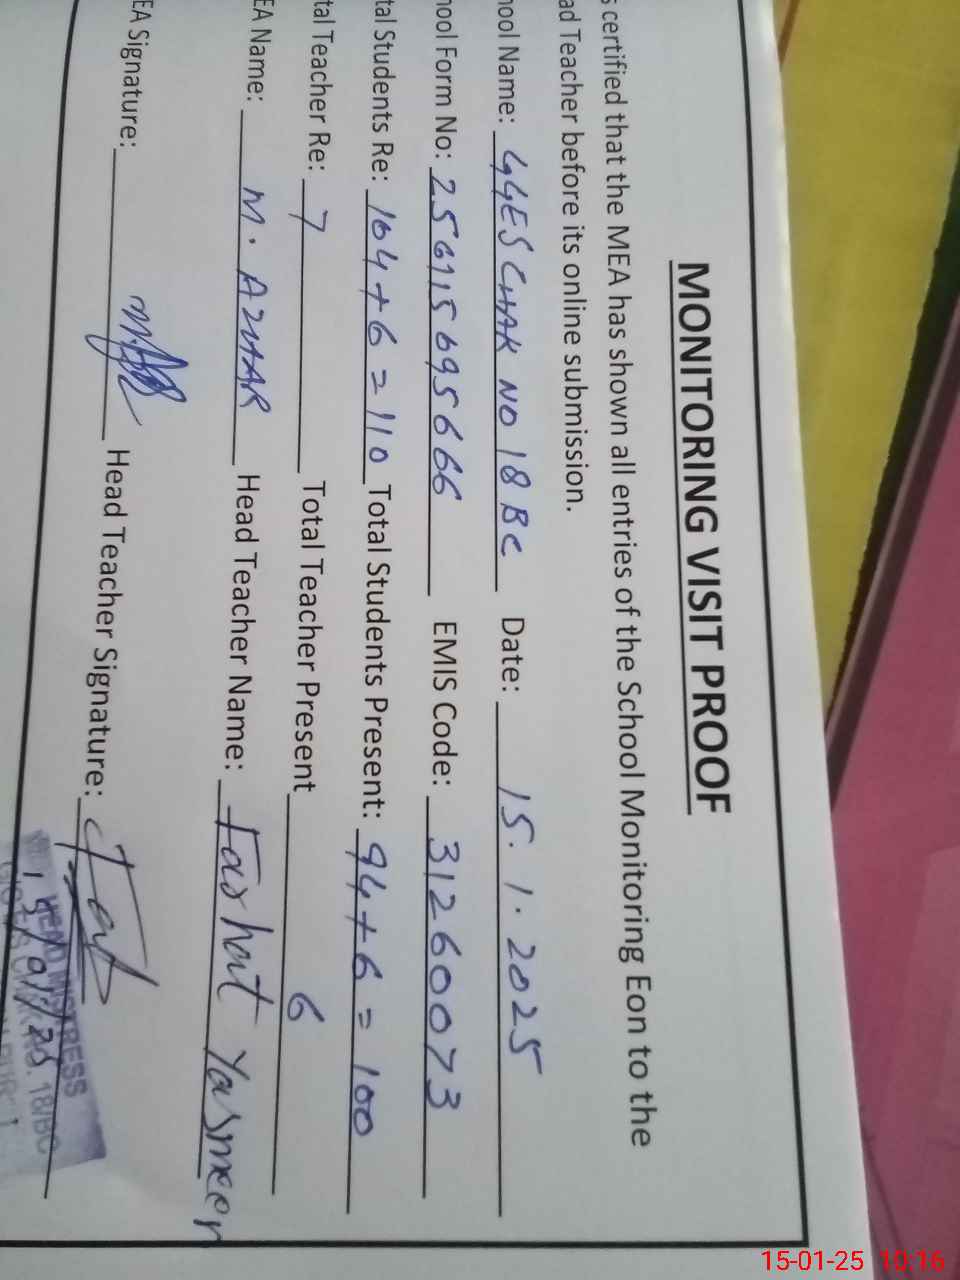 MONITORING VISIT PROOF
s certified that the MEA has shown all entries of the School Monitoring Eon to the
ad Teacher before its online submission.
hool Name: GGES CHAK NO 18 BC Date: 15.1.2025
hool Form No: 256115695666 EMIS Code: 31260073
tal Students Re: 104+6=110 Total Students Present: 94+6=100
tal Teacher Re: 7 Total Teacher Present 6
EA Name: M. AZHAR Head Teacher Name: Farhat Yasmeen
EA Signature: Head Teacher Signature:
HEAD MISTRESS
15/01/25
18/BC
15-01-25 10:16